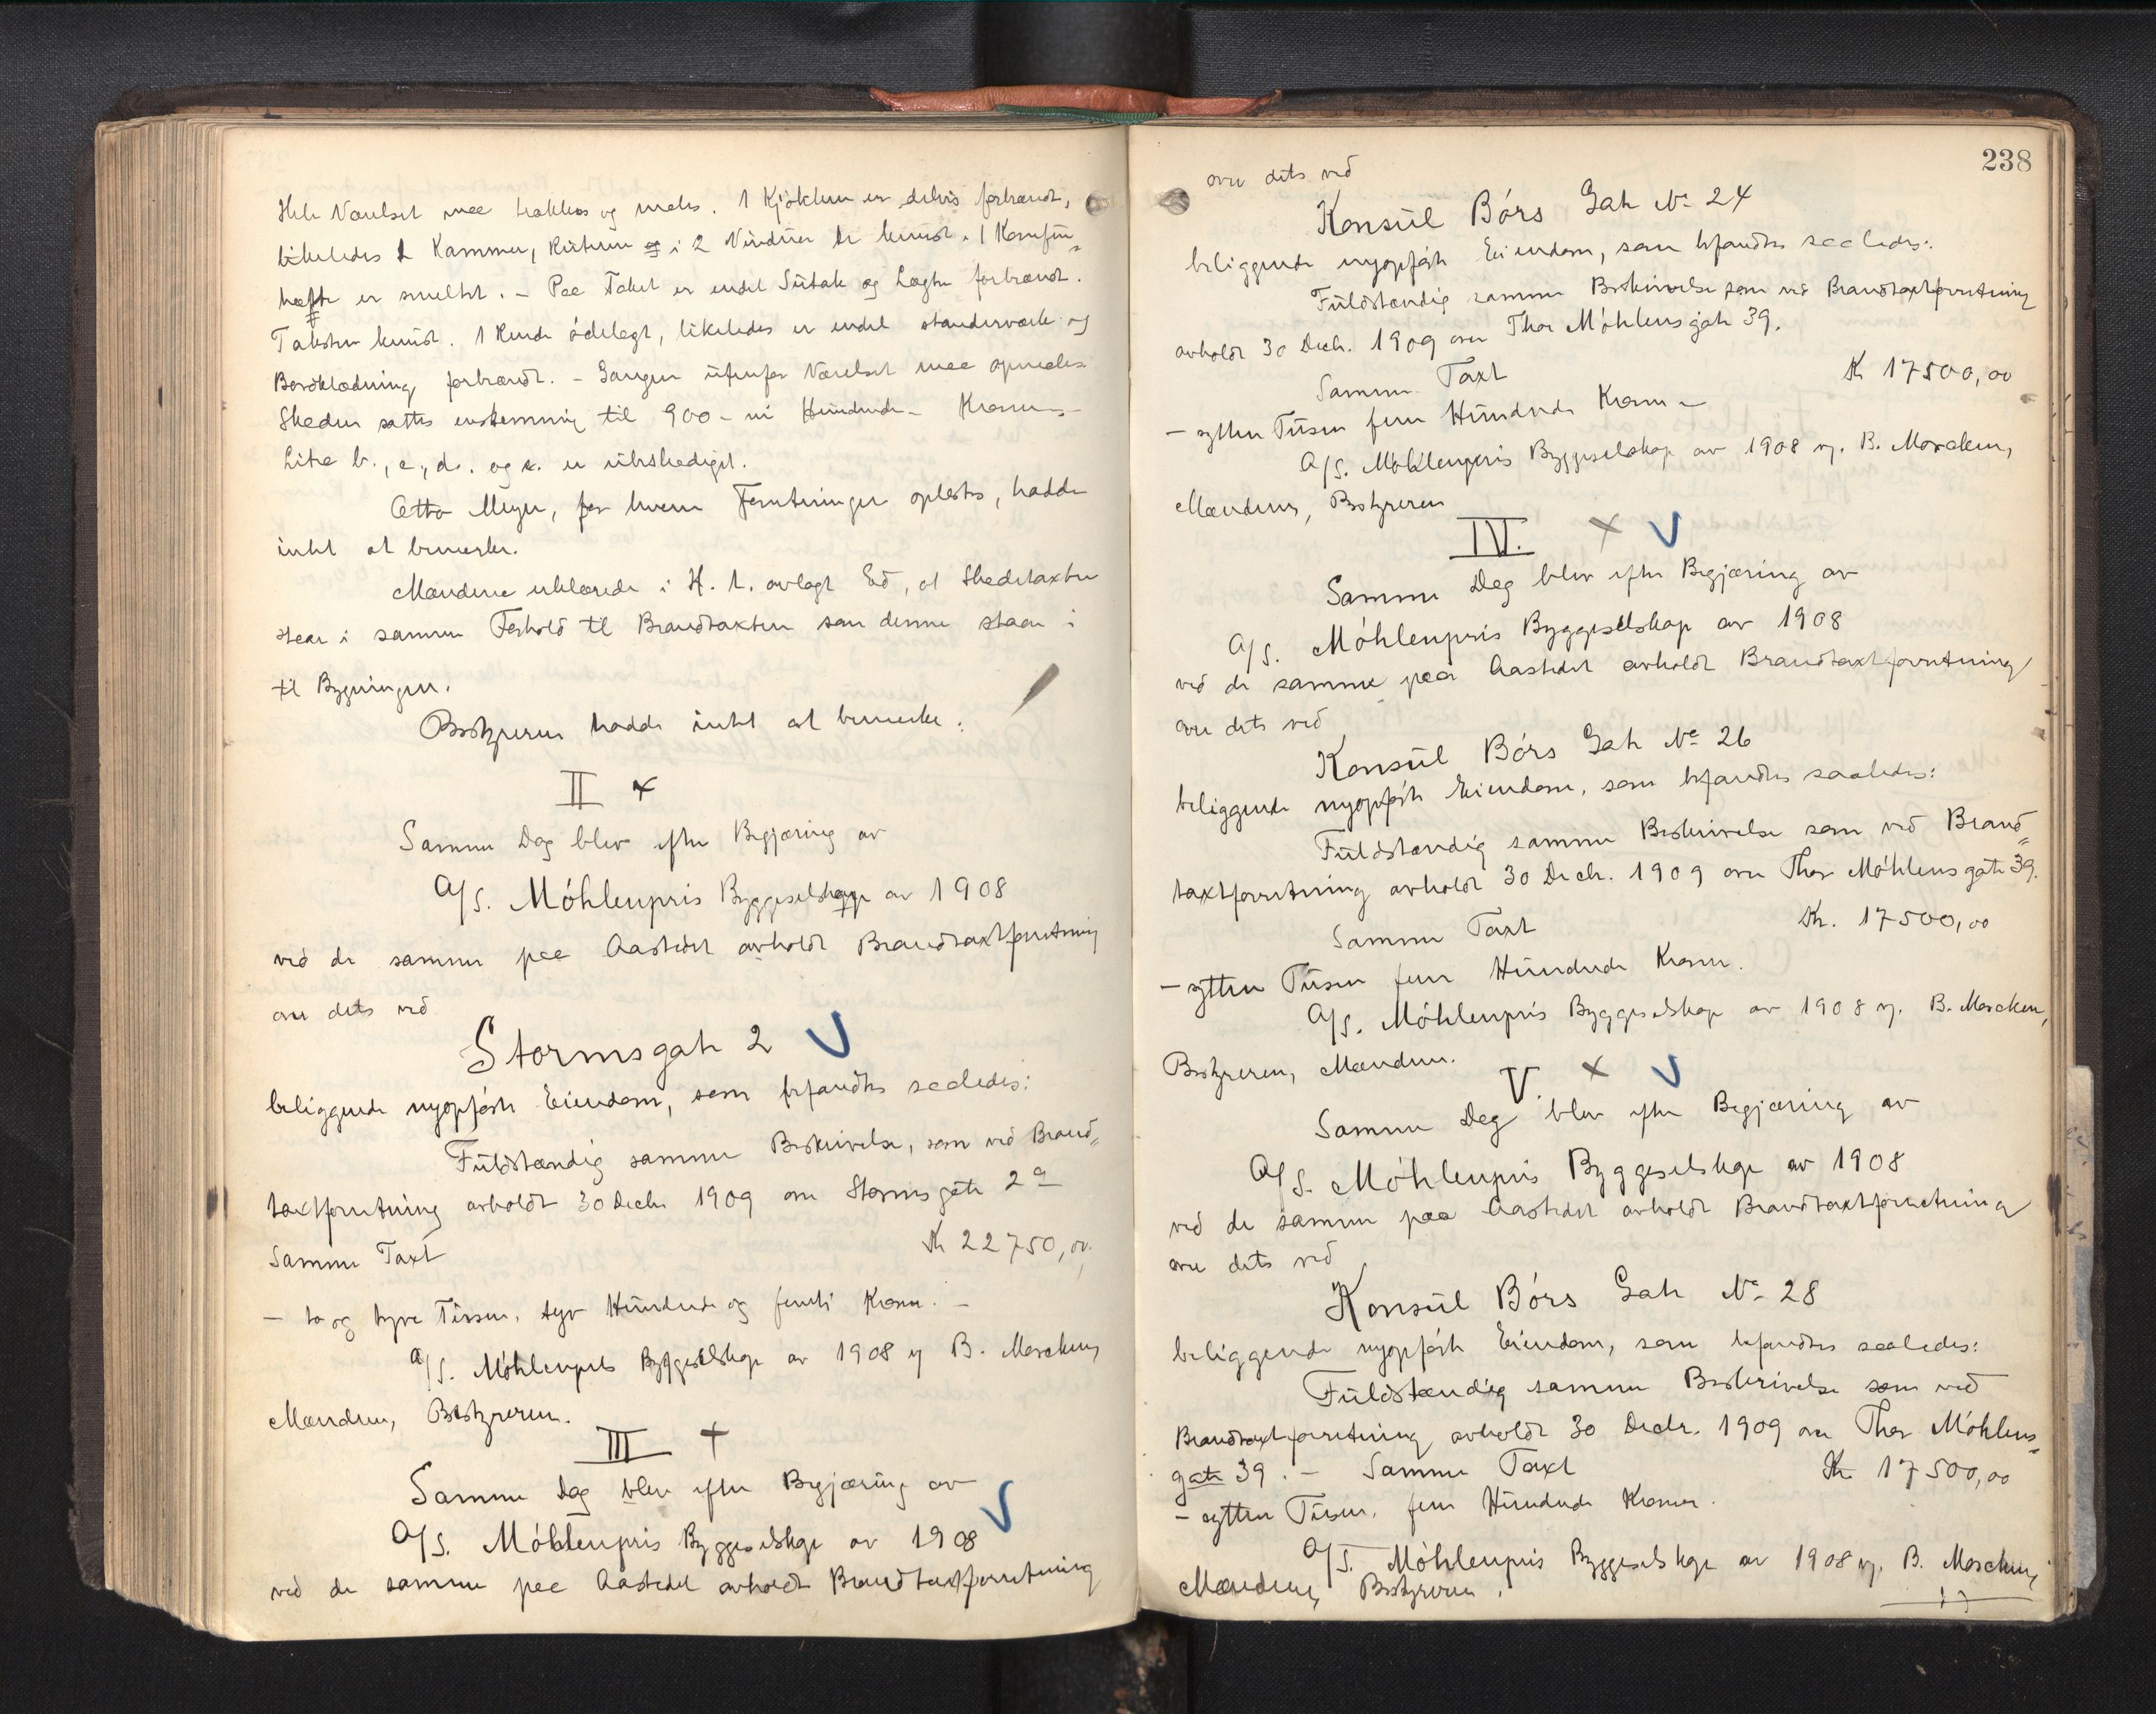 Hele Værelset maa trækkes og males. 1 Kjøkken er delvis forbrændt,
likeledes 1 Kammer, Ruterne i 2 Vinduer er knust. 1 Komfur
er smeltet. – Paa Taket er endel Sutak og Lægter forbrændt.
Taksten knust. 1 Rende ødelagt, likeledes er endel standerværk og
Bordklædning forbrændt. – Gangen utenfor Værelset maa opmales.
Skaden sattes enstemmig til 900 – ni Hundrede – Kroner –
Litra b., c., d. og e. er ubeskadiget.
Otto Meyer, for hvem Forretningen oplæstes, hadde
intet at bemerke.
Mændene erklærede i H. t. avlagt Ed, at Skadetaxten
staar i samme Forhold til Brandtaxten som denne staar i
til Bygningen.
Bestyreren hadde intet at bemerke.
II x
Samme Dag blev efter Begjæring av
A/S. Möhlenpris Byggeselskap av 1908
ved de samme paa Aastedet avholdt Brandtaxtforretning
over dets ved
Stormsgate 2 V
beliggende nyopførte Eiendom, som befandtes saaledes:
Fuldstændig samme Beskrivelse, som ved Brand-
taxtforretning avholdt 30 Decbr 1909 over Stormsgate 2a
Samme Taxt Kr 22750,00.
– to og tyve Tusen, syv Hundrede og femti Kroner. –
A/S. Möhlenpris Byggeselskap av 1908 v. B. Marcken,
Mændene, Bestyreren.
III +
Samme Dag blev efter Begjæring av
A/S. Möhlenpris Byggeselskap av 1908 V
ved de samme paa Aastedet avholdt Brandtaxtforretning
238
over dets ved
Konsul Börs Gate No 24
beliggende nyopførte Eiendom, som befandtes saaledes:
Fuldstændig samme Beskrivelse som ved Brandtaxtforretning
avholdt 30 Decb. 1909 over Thor Möhlensgate 39.
Samme Taxt Kr 17500,00
– sytten Tusen fem Hundrede Kroner –
A/S. Möhlenpris Byggeselskap av 1908 v. B. Marcken,
Mændene, Bestyreren
IV. x V
Samme Dag blev efter Begjæring av
A/S. Möhlenpris Byggeselskap av 1908
ved de samme paa Aastedet avholdt Brandtaxtforretning
over dets ved
Konsul Börs Gate No 26
beliggende nyopførte Eiendom, som befandtes saaledes:
Fuldstændig samme Beskrivelse som ved Brand-
taxtforretning avholdt 30 Decb. 1909 over Thor Möhlens gate 39.
Samme Taxt Kr. 17500,00
– sytten Tusen fem Hundrede Kroner.
A/S. Möhlenpris Byggeselskap av 1908 v. B. Marcken,
Bestyreren, Mændene.
V. x V
Samme Dag blev efter Begjæring av
A/S. Möhlenpris Byggeselskap av 1908
ved de samme paa Aastedet avholdt Brandtaxtforretning
over dets ved
Konsul Börs Gate No 28
beliggende nyopførte Eiendom, som befandtes saaledes:
Fuldstændig samme Beskrivelse som ved
Brandtaxtforretning avholdt 30 Decbr. 1909 over Thor Möhlens-
gate 39. – Samme Taxt Kr. 17500,00
– sytten Tusen, fem Hundrede Kroner.
A/S. Möhlenpris Byggeselskap av 1908 v. B. Marcken,
Mændene, Bestyreren.